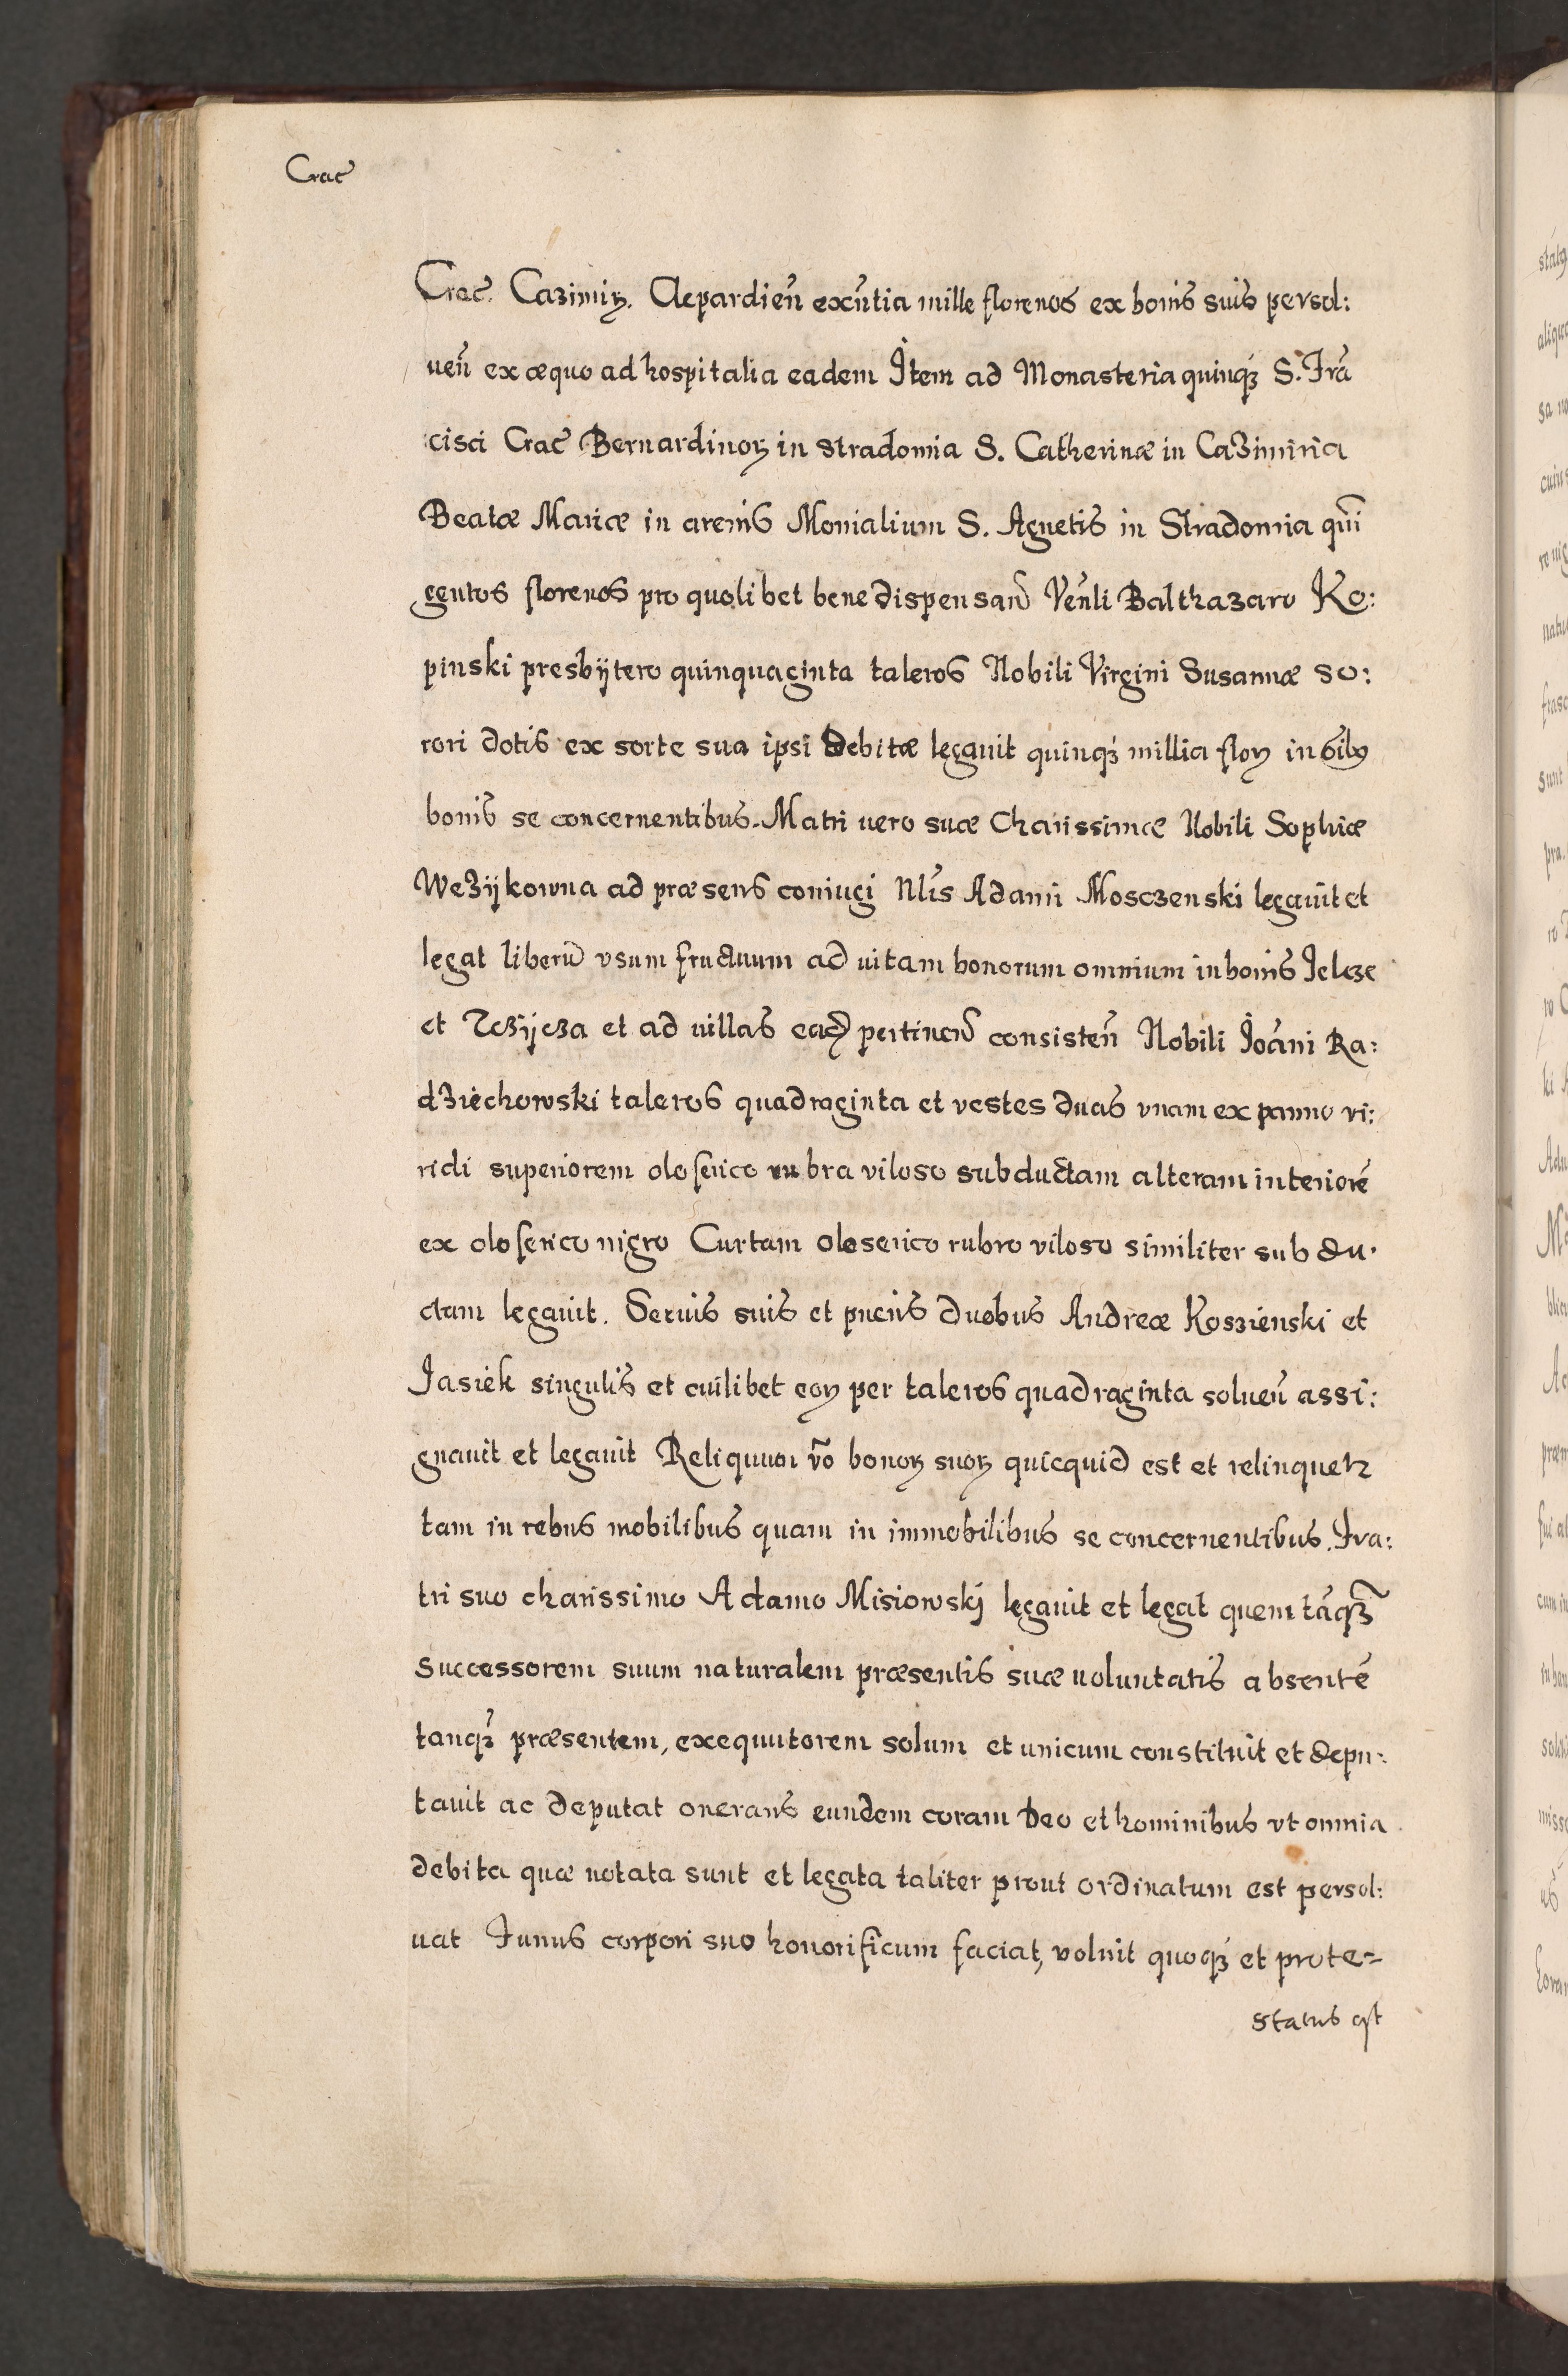 Crac̃
Crac̃. Cazimiꝝ. Clepardień exñtia mille florenos ex bonis suis persol:
ueń ex æquo ad hospitalia eadem Item ad Monasteria quinqꝫ S. Frã
cisci Crac̃ Bernardinoꝝ in Stradomia S. Catherinæ in Cazimiria
Beatæ Mariæ in arenis Monialium S. Agnetis in Stradomia quĩ
gentos florenos pro quolibet bene dispensan̄ Veñli Balthazaro Ko:
pinski presbÿtero quinquaginta taleros Nobili Virgini Susannæ so:
rori dotis ex sorte sua ipsi debitæ legauit quinqꝫ millia floꝝ in õibꝰ
bonis se concernentibus. Matri uero suæ Charissimæ Nobili Sophiæ
Wezÿkowna ad præsens coniugi Nlis Adami Mosczenski legauit et
legat liberũ vsum fructuum ad uitam bonorum omnium in bonis Jelcze
et Tczÿcza et ad uillas eadẽ pertineñ consisteñ Nobili Joãni Ra:
dziechowski taleros quadraginta et vestes duas vnam ex panno vi:
ridi superiorem oloserico rubra viloso subductam alteram interiorẽ
ex oloserico nigro Curtam oloserico rubro viloso similiter subdu:
ctam legauit. Seruis suis et pueris duobus Andreæ Koszienski et
Jasiek singulis et cuilibet eoꝝ per taleros quadraginta solueñ assi:
gnauit et legauit Reliquum v̄o bonoꝝ suoꝝ quicquid est et relinquetꝛ
tam in rebus mobilibus quam in immobilibus se concernentibus. Fra:
tri suo charissimo Adamo Misiowskj legauit et legat quem tãqꝫ
successorem suum naturalem præsentis suæ uoluntatis absentẽ
tanqꝫ præsentem, exequutorem solum et unicum constituit et depu:
tauit ac deputat onerans eundem coram Deo et hominibus vt omnia
debita quæ notata sunt et legata taliter prout ordinatum est persol:
uat Funus corpori suo honorificum faciat, voluit quoqꝫ et prote=
status est